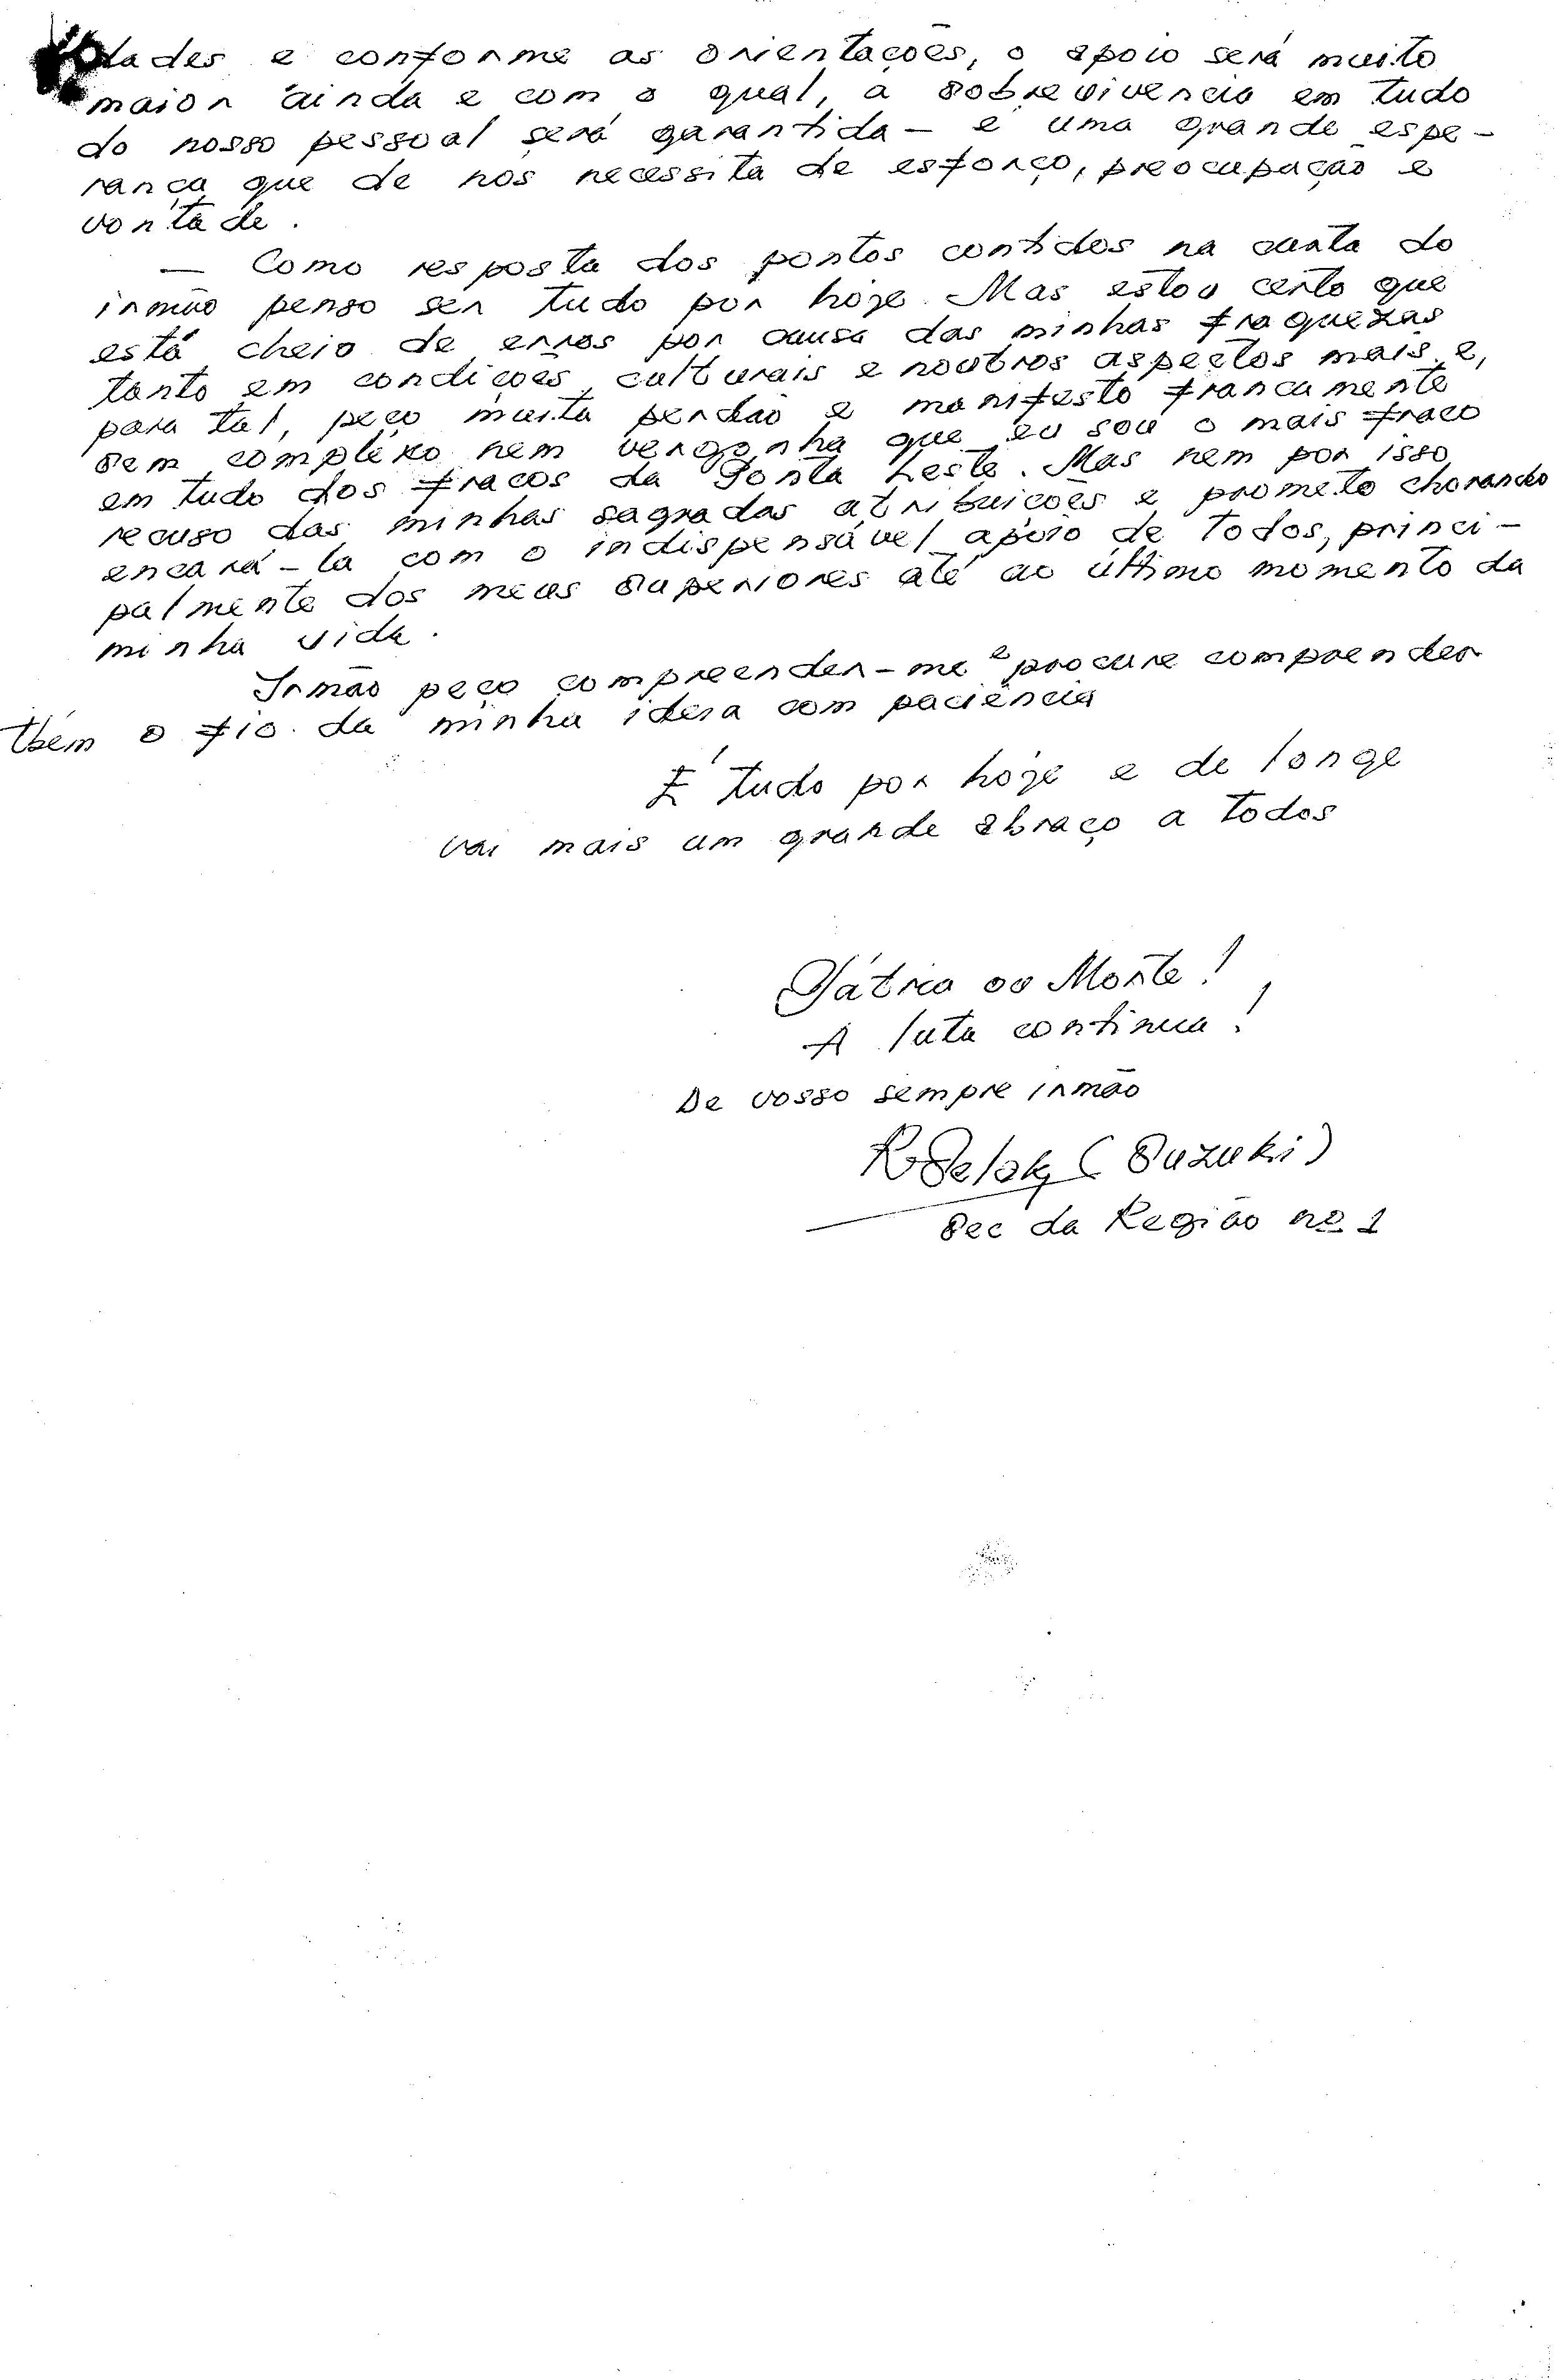 dades e conforme as orientações, o apoio será muito
maior ainda e com o qual, a sobrevivencia em tudo
do nosso pessoal será garantida — é uma grande espe-
rança que de nós necessita de esforço, preocupação e
vontade.
— Como resposta dos pontos contidos na carta do
irmão penso ser tudo por hoje. Mas estou certo que
está cheio de erros por causa das minhas fraquezas
tanto em condições culturais e noutros aspectos mais e,
para tal, peço muita perdão e manifesto francamente
sem complexo nem vergonha que eu sou o mais fraco
em tudo dos fracos da Ponta Leste. Mas nem por isso
recuso das minhas sagradas atribuicões e prometo chorando
encará-la com o indispensável apoio de todos, princi-
palmente dos meus superiores até ao último momento da
minha vida.
Irmão peço compreender-me e procure compreender
tbém o fio da minha ideia com paciência
É tudo por hoje e de longe
vai mais um grande abraço a todos
Pátria ou Morte!
A luta continua!
De vosso sempre irmão
(Suzuki)
Sec da Região nº 1